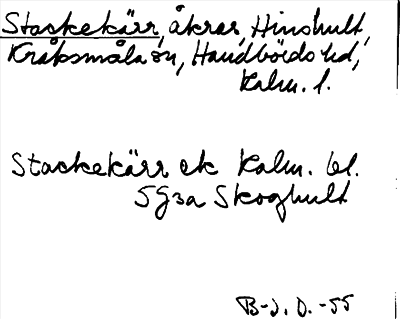 Stackekärr, åkrar, Hinshult,
Kråksmåla sn, Handbörds hd,
Kalm. l.
Stackekärr ek Kalm. bl.
5G3a Skoghult
B-J. D. -55